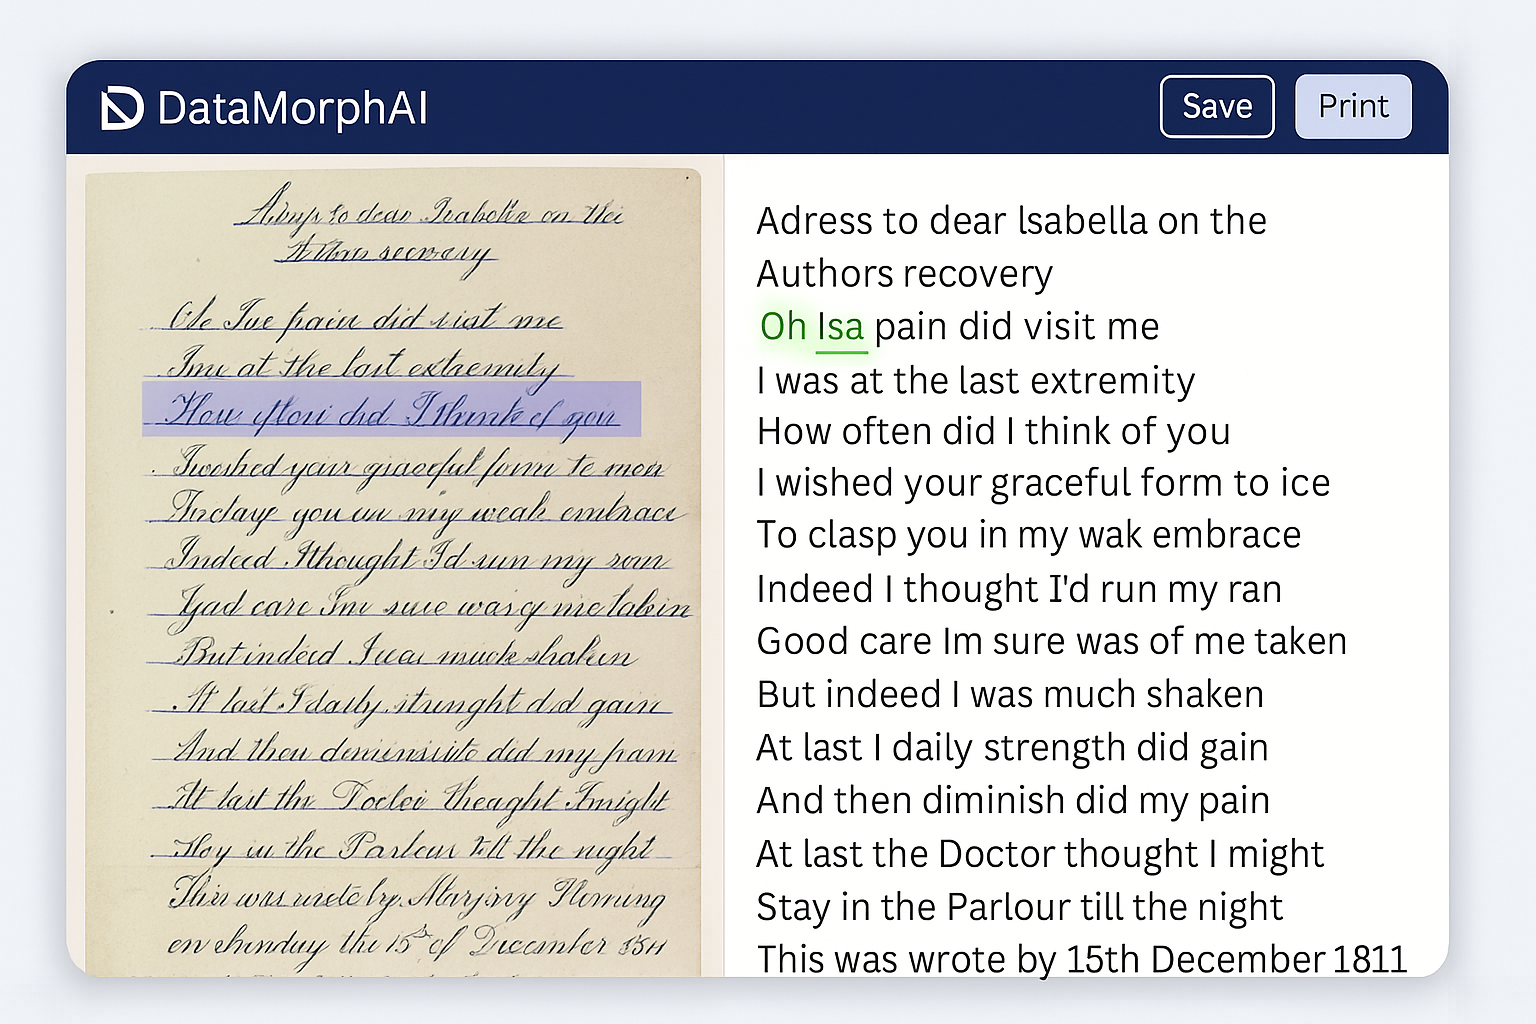 DataMorphAI
Save
Print
dear Isabella on the
recovery
pain did visit me
at the last extremity
did I think of you
your graceful form to
you in my weak embrace
Indeed I thought I'd run my
care Im sure was me
But indeed I was much shaken
At last I daily strenght did gain
And then did my pain
At last the thought I might
in the Parlour till the night
This was by Marjory Fleming
on the 15th of December
Adress to dear Isabella on the
Authors recovery
Oh Isa pain did visit me
I was at the last extremity
How often did I think of you
I wished your graceful form to ice
To clasp you in my wak embrace
Indeed I thought I'd run my ran
Good care Im sure was of me taken
But indeed I was much shaken
At last I daily strength did gain
And then diminish did my pain
At last the Doctor thought I might
Stay in the Parlour till the night
This was wrote by 15th December 1811